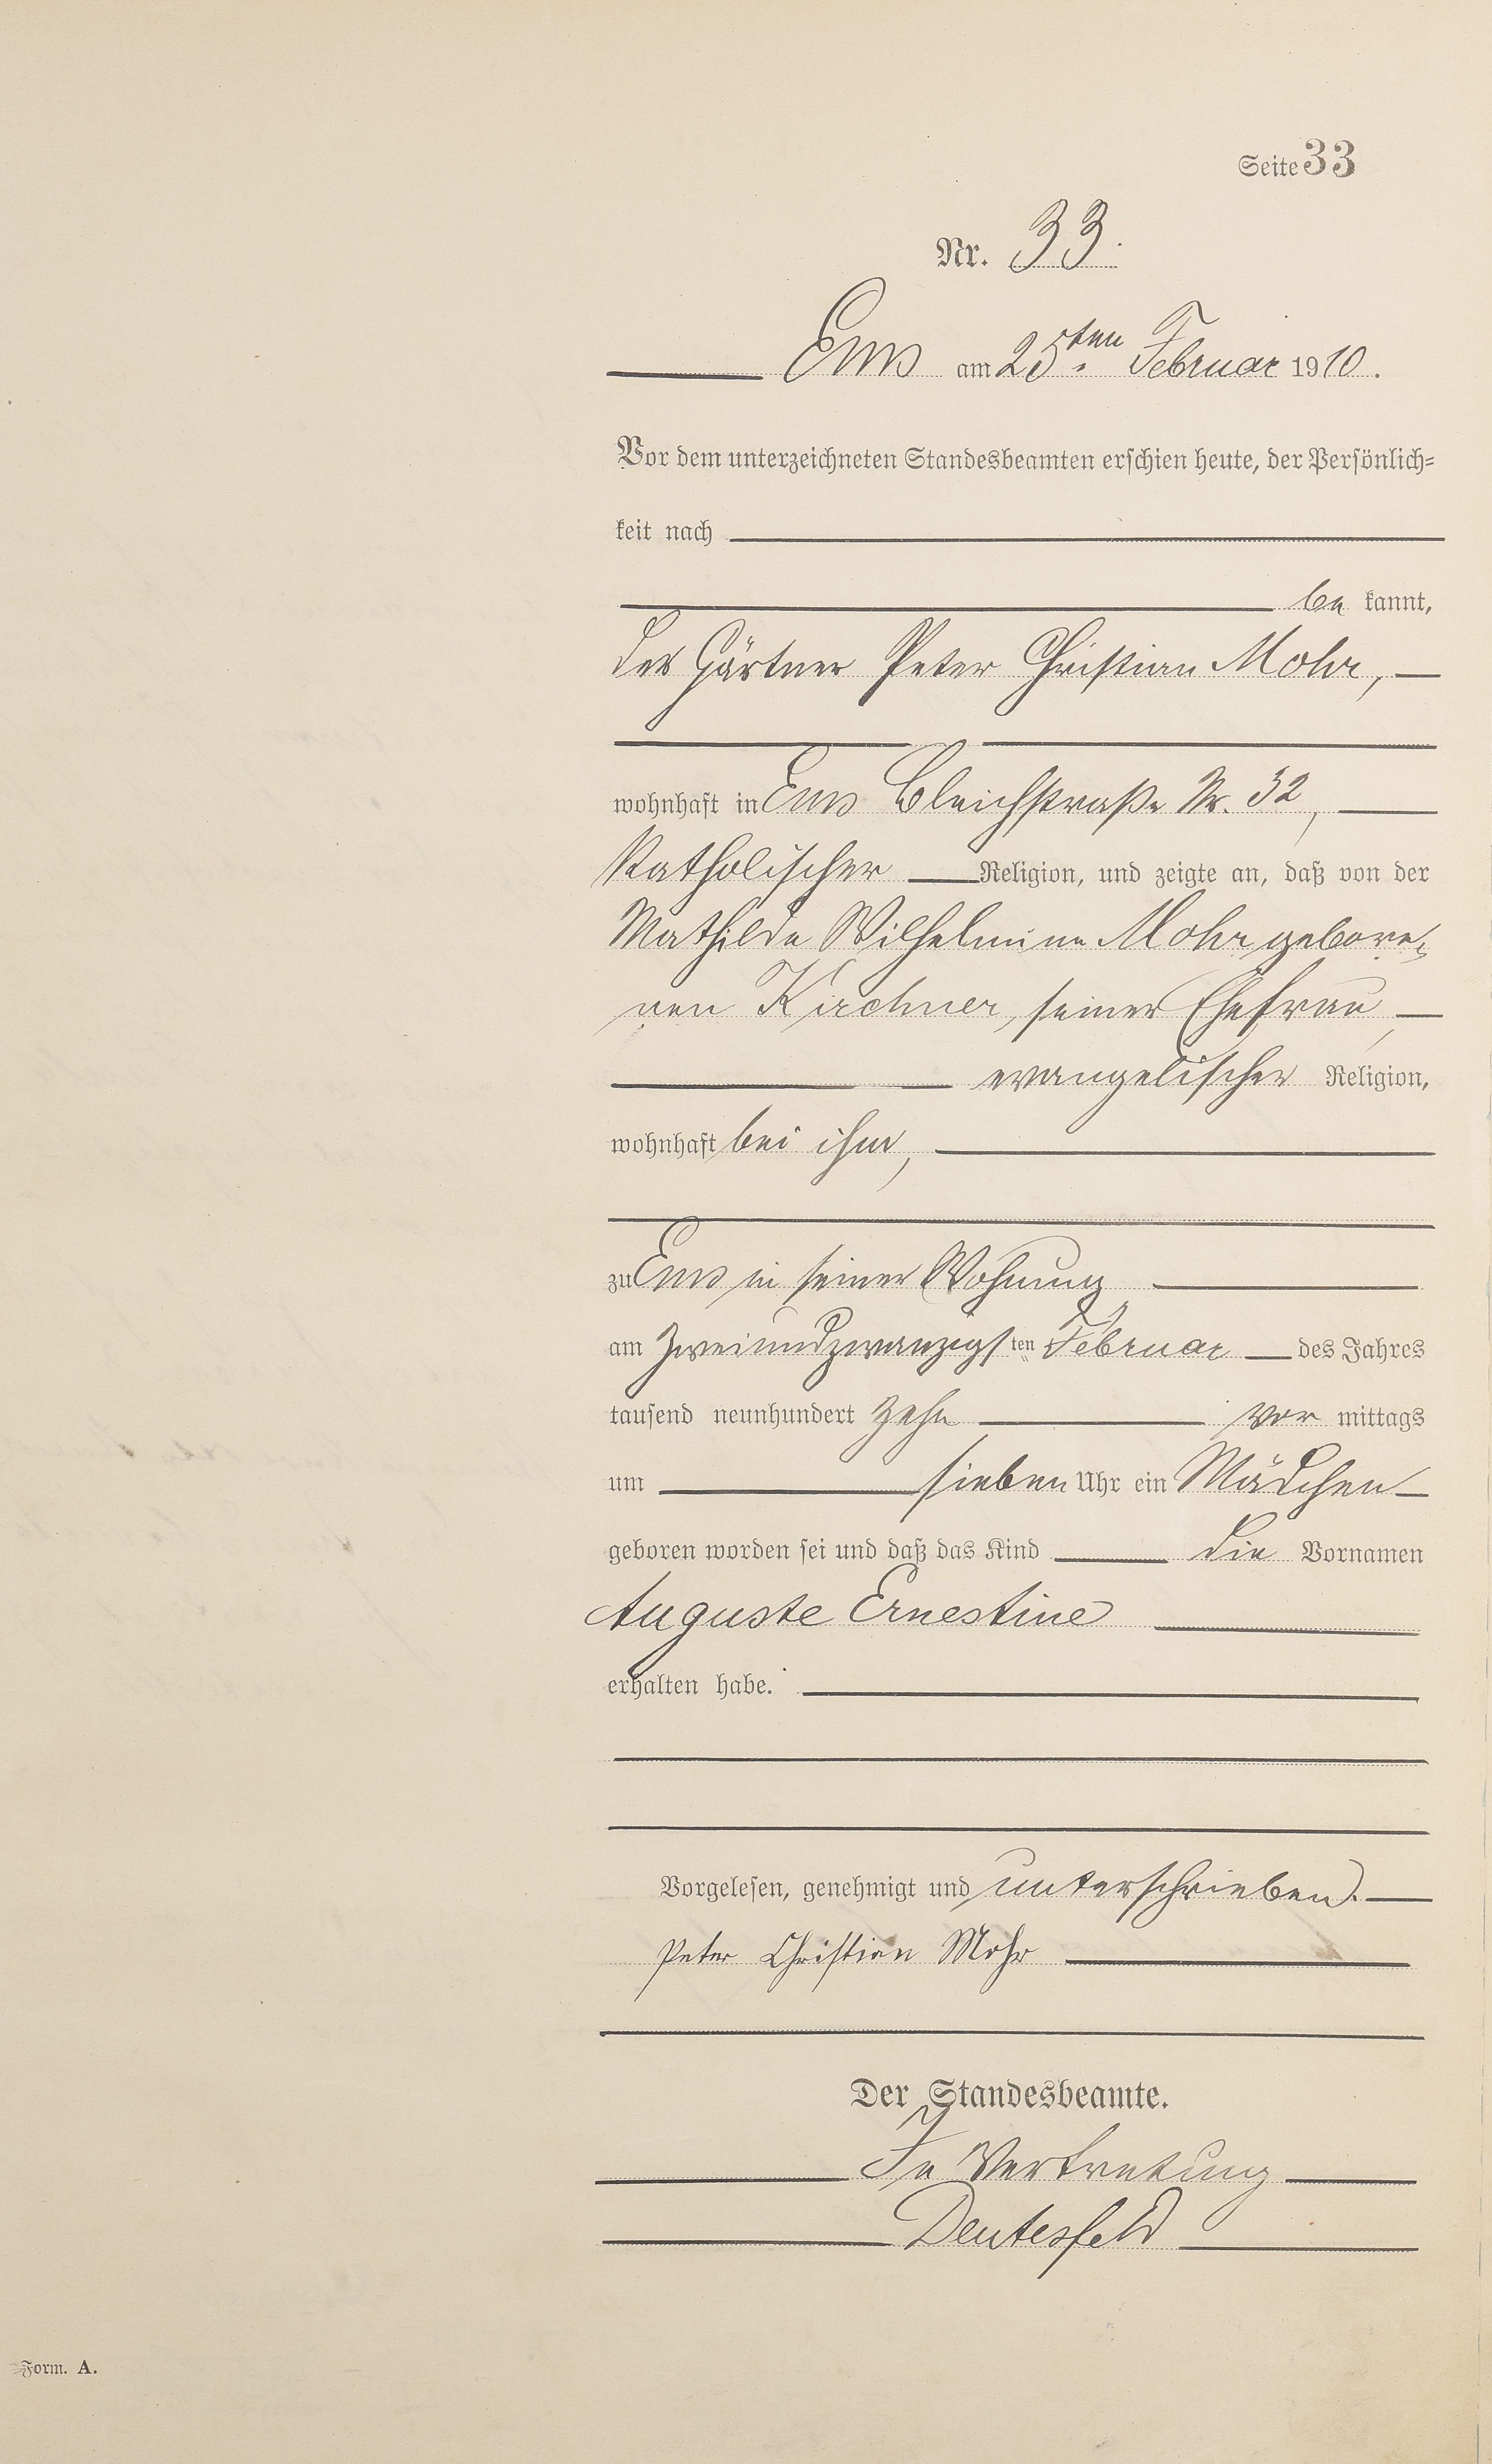 Seite 33
Nr. 33.
Ems am 25ten Februar 1910.
Vor dem unterzeichneten Standesbeamten erschien heute, der Persönlich-
keit nach
be kannt,
der Gärtner Peter Christian Mohr,
wohnhaft in Ems Bleichstraße Nr. 32,
Katholischer Religion, und zeigte an, daß von der
Mathilde Wilhelmine Mohr gebore-
nen Kirchner, seiner Ehefrau,
evangelischer Religion,
wohnhaft bei ihm,
zu Ems in seiner Wohnung
am Zweiundzwanzigsten Februar des Jahres
tausend neunhundert zehn vor mittags
um sieben Uhr ein Mädchen
geboren worden sei und daß das Kind die Vornamen
Auguste Ernestine
erhalten habe.
Vorgelesen, genehmigt und unterschrieben.
Peter Christian Mohr
Der Standesbeamte.
In Vertretung
Deutesfeld
Form. A.